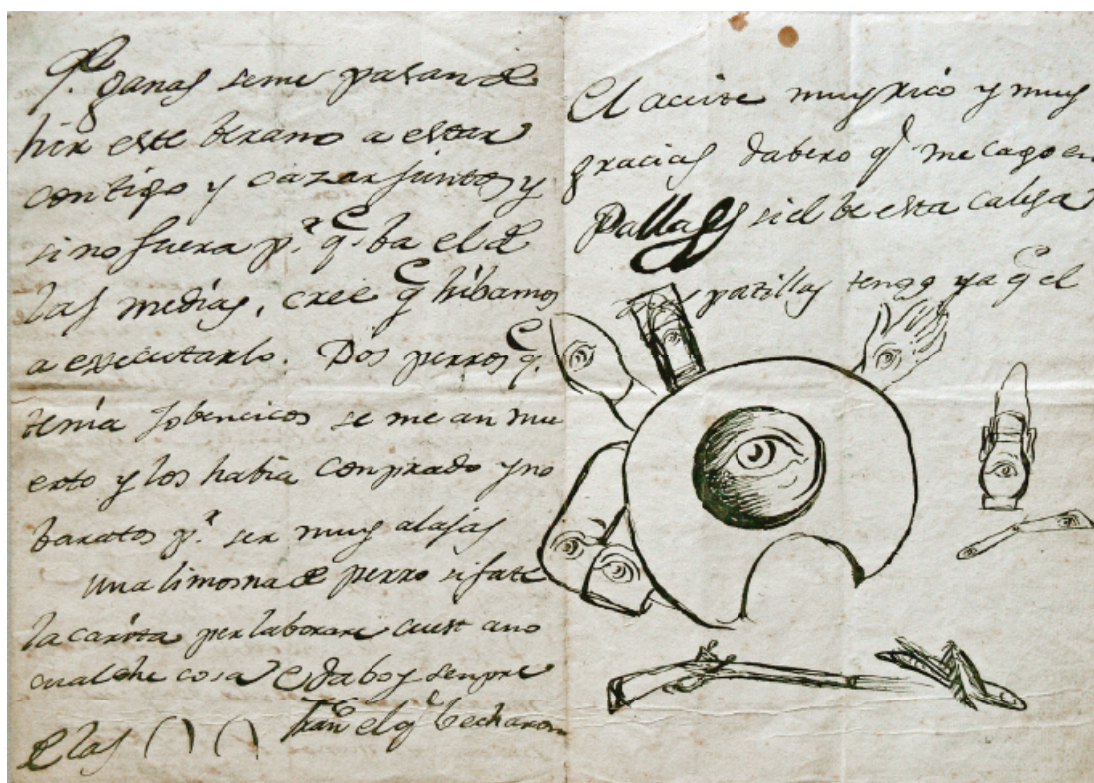 q.e ganas se me pasan de
hir este berano a estar
contigo y cazar juntos y
sino fuera p.r q.e ba el de
las medias, cree q.e hibamos
a executarlo. Dos perros q.e
tenia jobencicos se me an mu
erto y los habia comprado y no
baratos p.r ser muy alajas
Una limosna de perro si fate
la carita per laborare cuest ano
cualche cosa
e las ( ) ( ) Fran.co el q.e
El aceite muy rico y muy
gracias
q.e me cago en
si el be esta
patillas tengo ya q.e el